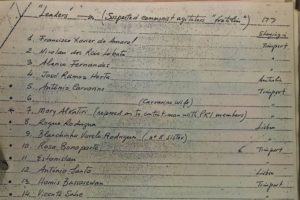 "Leaders" (Suspected communist agitators "Fretilin")
1. Francisco Xavier do Amaral Timport
2. Nicolau dos Reis Lobato
3. Alarico Fernandes
4. José Ramos Horta Australia
5. António Carvarino Timport
6. (Carvarino Wife)
7. Mary Alkatiri (referred on to contact man with PKI members)
8. Roque Rodrigues Lisbon
9. Blanchinha Varela Rodrigues (nº 8 sister)
10. Rosa Bonaparte Timport
11. Estanislau
12. António Santo Lisbon
13. Hamis Bassarewan Timport
14. Vicente Sahe